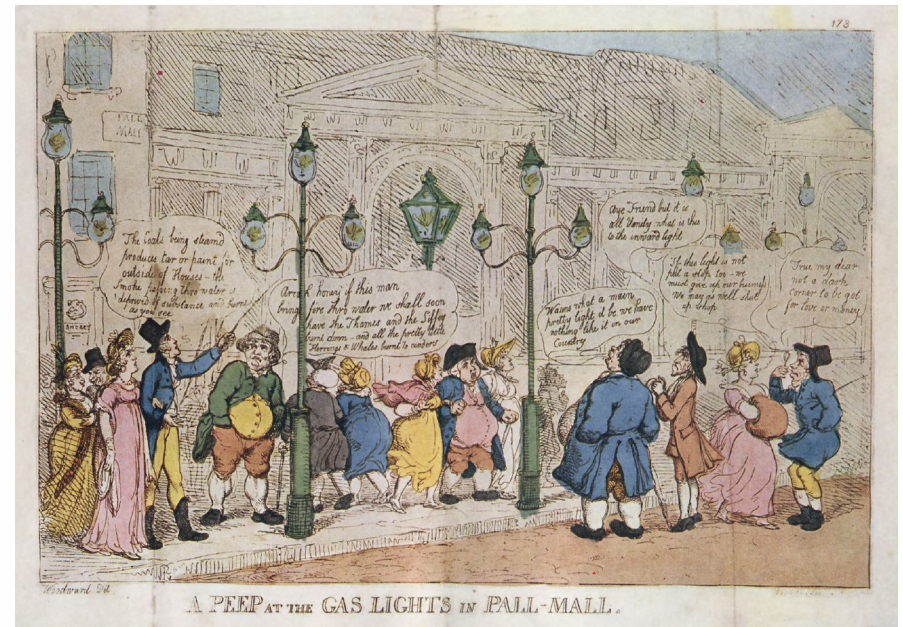 173
PALL
MALL
The Coals being steam'd
produces tar or paint for
outside of Houses - the
Smoke passing thro water is
deprived of substance and burns
as you see
Arrah honey if this man
bring fire thro water we shall soon
have the Thames and the Liffey
burnt down - and all the pretty little
Herrings & Whales burnt to cinders
Wauns what a main
pretty light it be we have
nothing like it in our
Country
Aye Friend but it is
all Vanity what is this
to the inward light
If this light is not
put a stop too - we
must give up our business
We may as well shut
up shop
True my dear
not a dark
corner to be got
for love or money
Woodward Del.
A PEEP AT THE GAS LIGHTS IN PALL-MALL.